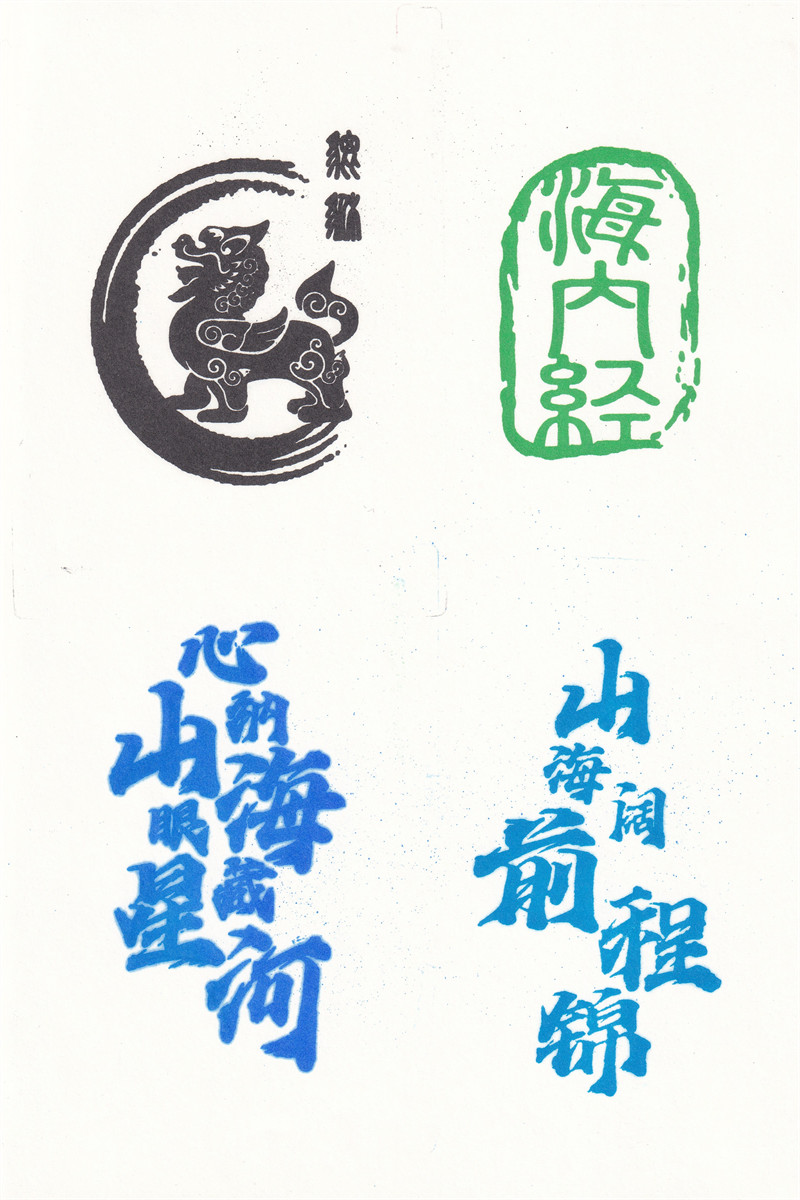 貔貅
海内经
心纳山海
眼藏星河
山海阔
前程锦